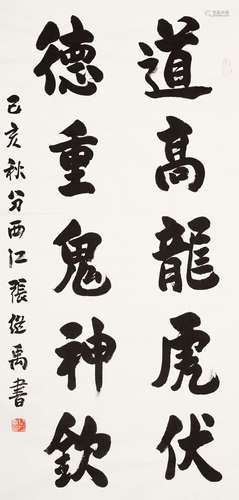 道高龍虎伏
德重鬼神欽
己亥秋分西江張繼禹書